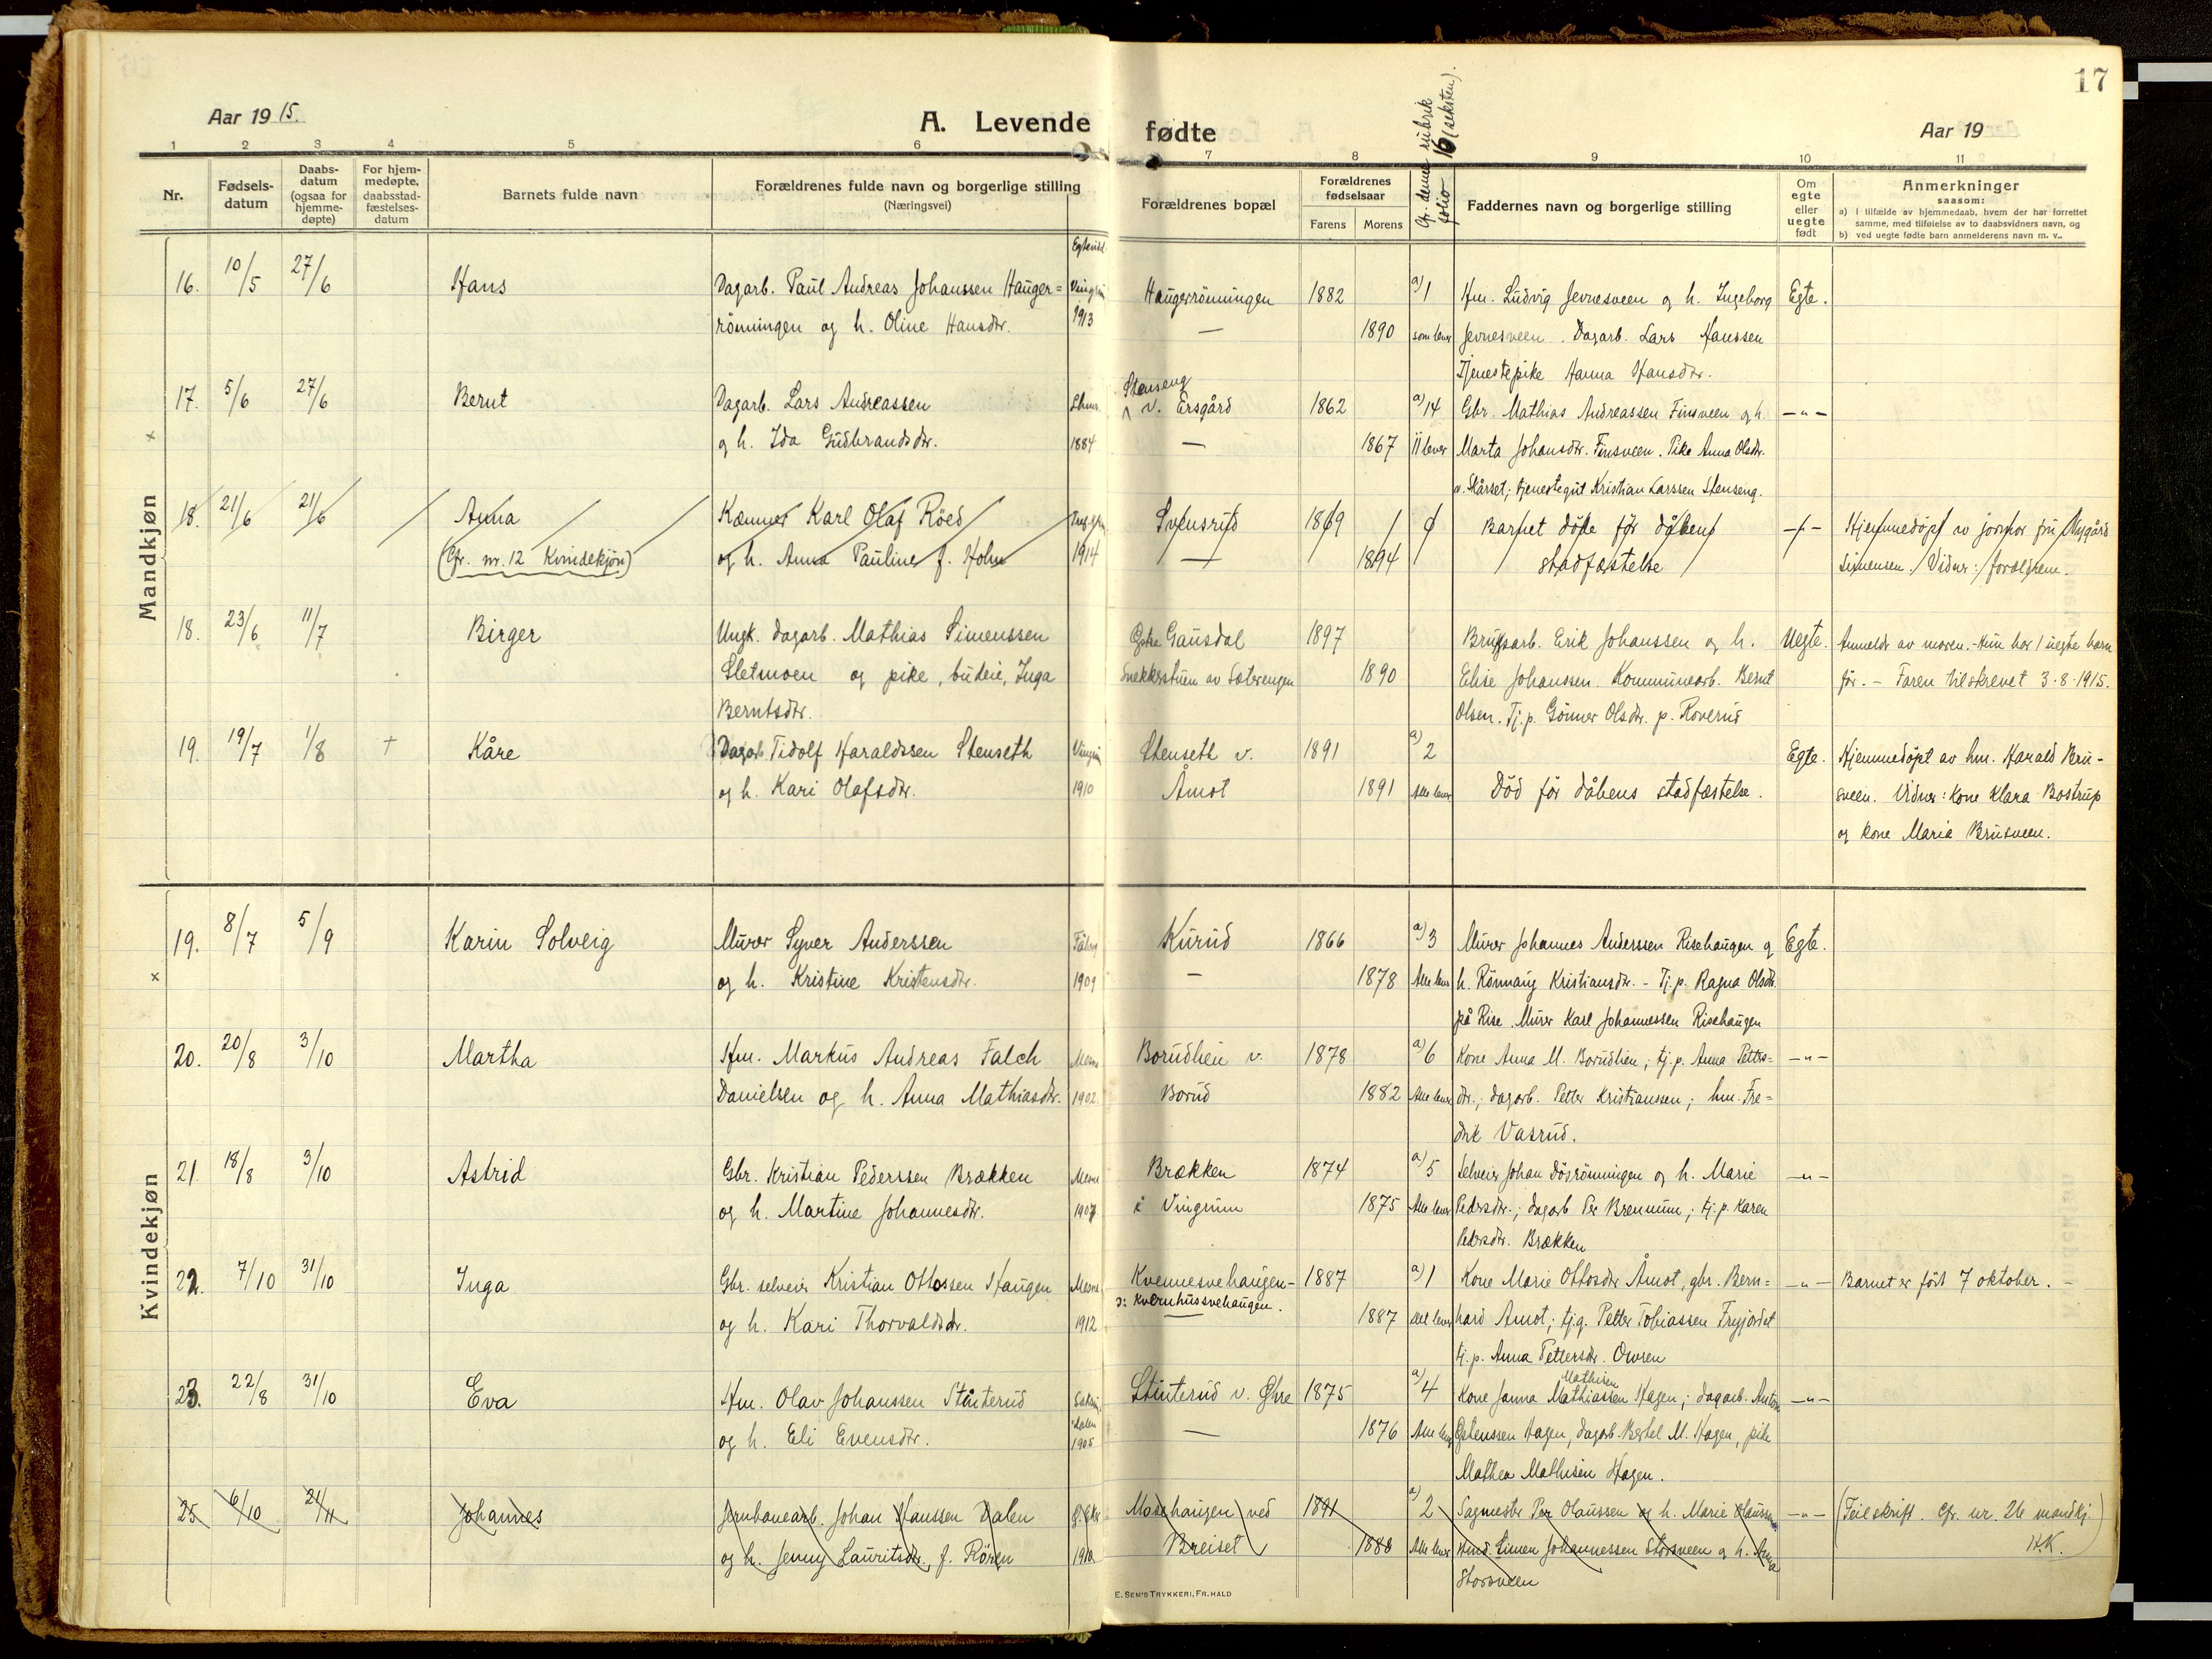 17
Aar 1915.
A. Levende
fødte
Aar 19
Cfr. denne rubrik
folio 16 (seksten).
1 2 3 4 5 6 7 8 9 10 11
Nr.
Fødsels-
datum
Daabs-
datum
(ogsaa for
hjemme-
døpte)
For hjem-
medøpte,
daabsstad-
fæstelses-
datum
Barnets fulde navn
Forældrenes fulde navn og borgerlige stilling
(Næringsvei)
Forældrenes bopæl
Forældrenes
fødselsaar
Farens
Morens
Faddernes navn og borgerlige stilling
Om
egte
eller
uegte
født
Anmerkninger
saasom:
a) i tilfælde av hjemmedaab, hvem der har forrettet
samme, med tilføielse av to daabsvidners navn, og
b) ved uegte fødte barn anmelderens navn m. v..
Mandkjøn
16. 10/5 27/6 Hans Dagarb. Paul Andreas Johanssen Hauger= Vingrom Haugerrønningen 1882 a) 1 Hm. Ludvig Jevnesveen og h. Ingeborg Egte.
rønningen og h. Oline Hansdtr. 1913 — 1890 som lever Jevnesveen. Dagarb. Lars Hanssen
Tjenestepike Hanna Hansdtr.
17. 5/6 27/6 Bernt Dagarb. Lars Andreassen Lhmr. Stenseng v. Ersgård 1862 a) 14 Gbr. Mathias Andreassen Finsveen og h. —„—
× og h. Ida Gudbrandsdtr. 1884 — 1867 11 lever Marta Johansdtr. Finsveen. Pike Anna Olsdtr.
v. Skårset; tjenestegut Kristian Larssen Stenseng.
18. 21/6 21/6 Anna Kæmner Karl Olaf Röed Svensrud 1869 Barnet döde för dåbens —„— Hjemmedöpt av jormor fru Nygård
(Cfr. nr. 12 Kvindekjøn) og h. Anna Pauline f. Holm 1914 — 1894 stadfæstelse Simensen. Vidner: forældrene.
18. 23/6 11/7 Birger Ungk. dagarb. Mathias Simenssen Østre Gausdal 1897 Brugsarb. Erik Johanssen og h. Uegte. Anmeldt av moren. - Hun har 1 uegte barn
Sletmoen og pike, budeie, Inga Snekkerstuen av Sæterengen 1890 Elise Johanssen. Kommunearb. Bernt för. - Faren tilskrevet 3-8-1915.
Berntsdtr. Olsen. Tj. p. Gunner Olsdtr. p. Roverud
19. 19/7 1/8 + Kåre Dagarb. Tidolf Haraldssen Stenseth Vingrom Stenseth v. 1891 a) 2 Egte. Hjemmedöpt av hm. Harald Bru-
og h. Kari Olafsdtr. 1910 Åmot 1891 Alle lever Död för dåbens stadfæstelse. sveen. Vidner: Kone Klara Bostrup
og kone Marie Brusveen.
Kvindekjøn
19. 8/7 5/9 Karin Solveig Murer Syver Anderssen Fåberg Kurud 1866 a) 3 Murer Johannes Anderssen Risehaugen og Egte.
× og h. Kristine Kristensdtr. 1909 — 1878 Alle lever h. Rönnaug Kristiansdtr. - Tj. p. Ragna Olsdtr.
på Rise. Murer Karl Johannessen Risehaugen
20. 20/8 3/10 Martha Hm. Markus Andreas Falch Mesna Borudlien v. 1878 a) 6 Kone Anna M. Borudlien; tj. p. Anna Petters= —„—
Danielsen og h. Anna Mathiasdtr. 1902 Borud 1882 Alle lever dtr.; dagarb. Petter Kristianssen; hm. Fre=
drik Vasrud.
21. 18/8 3/10 Astrid Gbr. Kristian Pederssen Brækken Mesna Brækken 1874 a) 5 Selveier Johan Dösrönningen og h. Marie —„—
og h. Martine Johannesdtr. 1907 i Vingrum 1875 Alle lever Pedersdtr.; dagarb Per Brennum; tj. p. Karen
Pedersdtr. Brækken
22. 7/10 31/10 Inga Gbr. selveier Kristian Ottossen Haugen Mesna Kvennesvehaugen- 1887 a) 1 Kone Marie Ottosdtr Åmot, gbr. Bern= —„— Barnet er fört 7 oktober. -
og h. Kari Thorvaldsdtr. 1912 ɔ: Kvernhussvehaugen. 1887 lever hard Åmot; tj.g. Petter Tobiassen Fryjordet
tj. p. Anna Pettersdtr. Owren
23. 22/8 31/10 Eva Hm. Olav Johanssen Stinterud Stinterud v. Øhre 1875 a) 4 Kone Janna Mathiassen Mathisen Hagen; dagarb. Anton —„—
og h. Eli Evensdtr. 1905 — 1876 Alle lever Østenssen Hagen, dagarb. Bertel M. Hagen, pike
Mathea Mathisen Hagen.
25 6/10 21/11 Johannes Jernbanearb. Johan Hanssen Dalen Mosehaugen ved 1891 a) 2 Sagmester Per Olaussen og h. Marie Olaussen —„— (Feilskrift. Cfr. nr. 26 mandkj.
og h. Jenny Lauritsdtr. f. Rören 1910 Breiset 1888 Alle lever Simen Johannessen Storsveen og h. Anna K.K.)
Storsveen
E. SEM'S TRYKKERI, FR.HALD